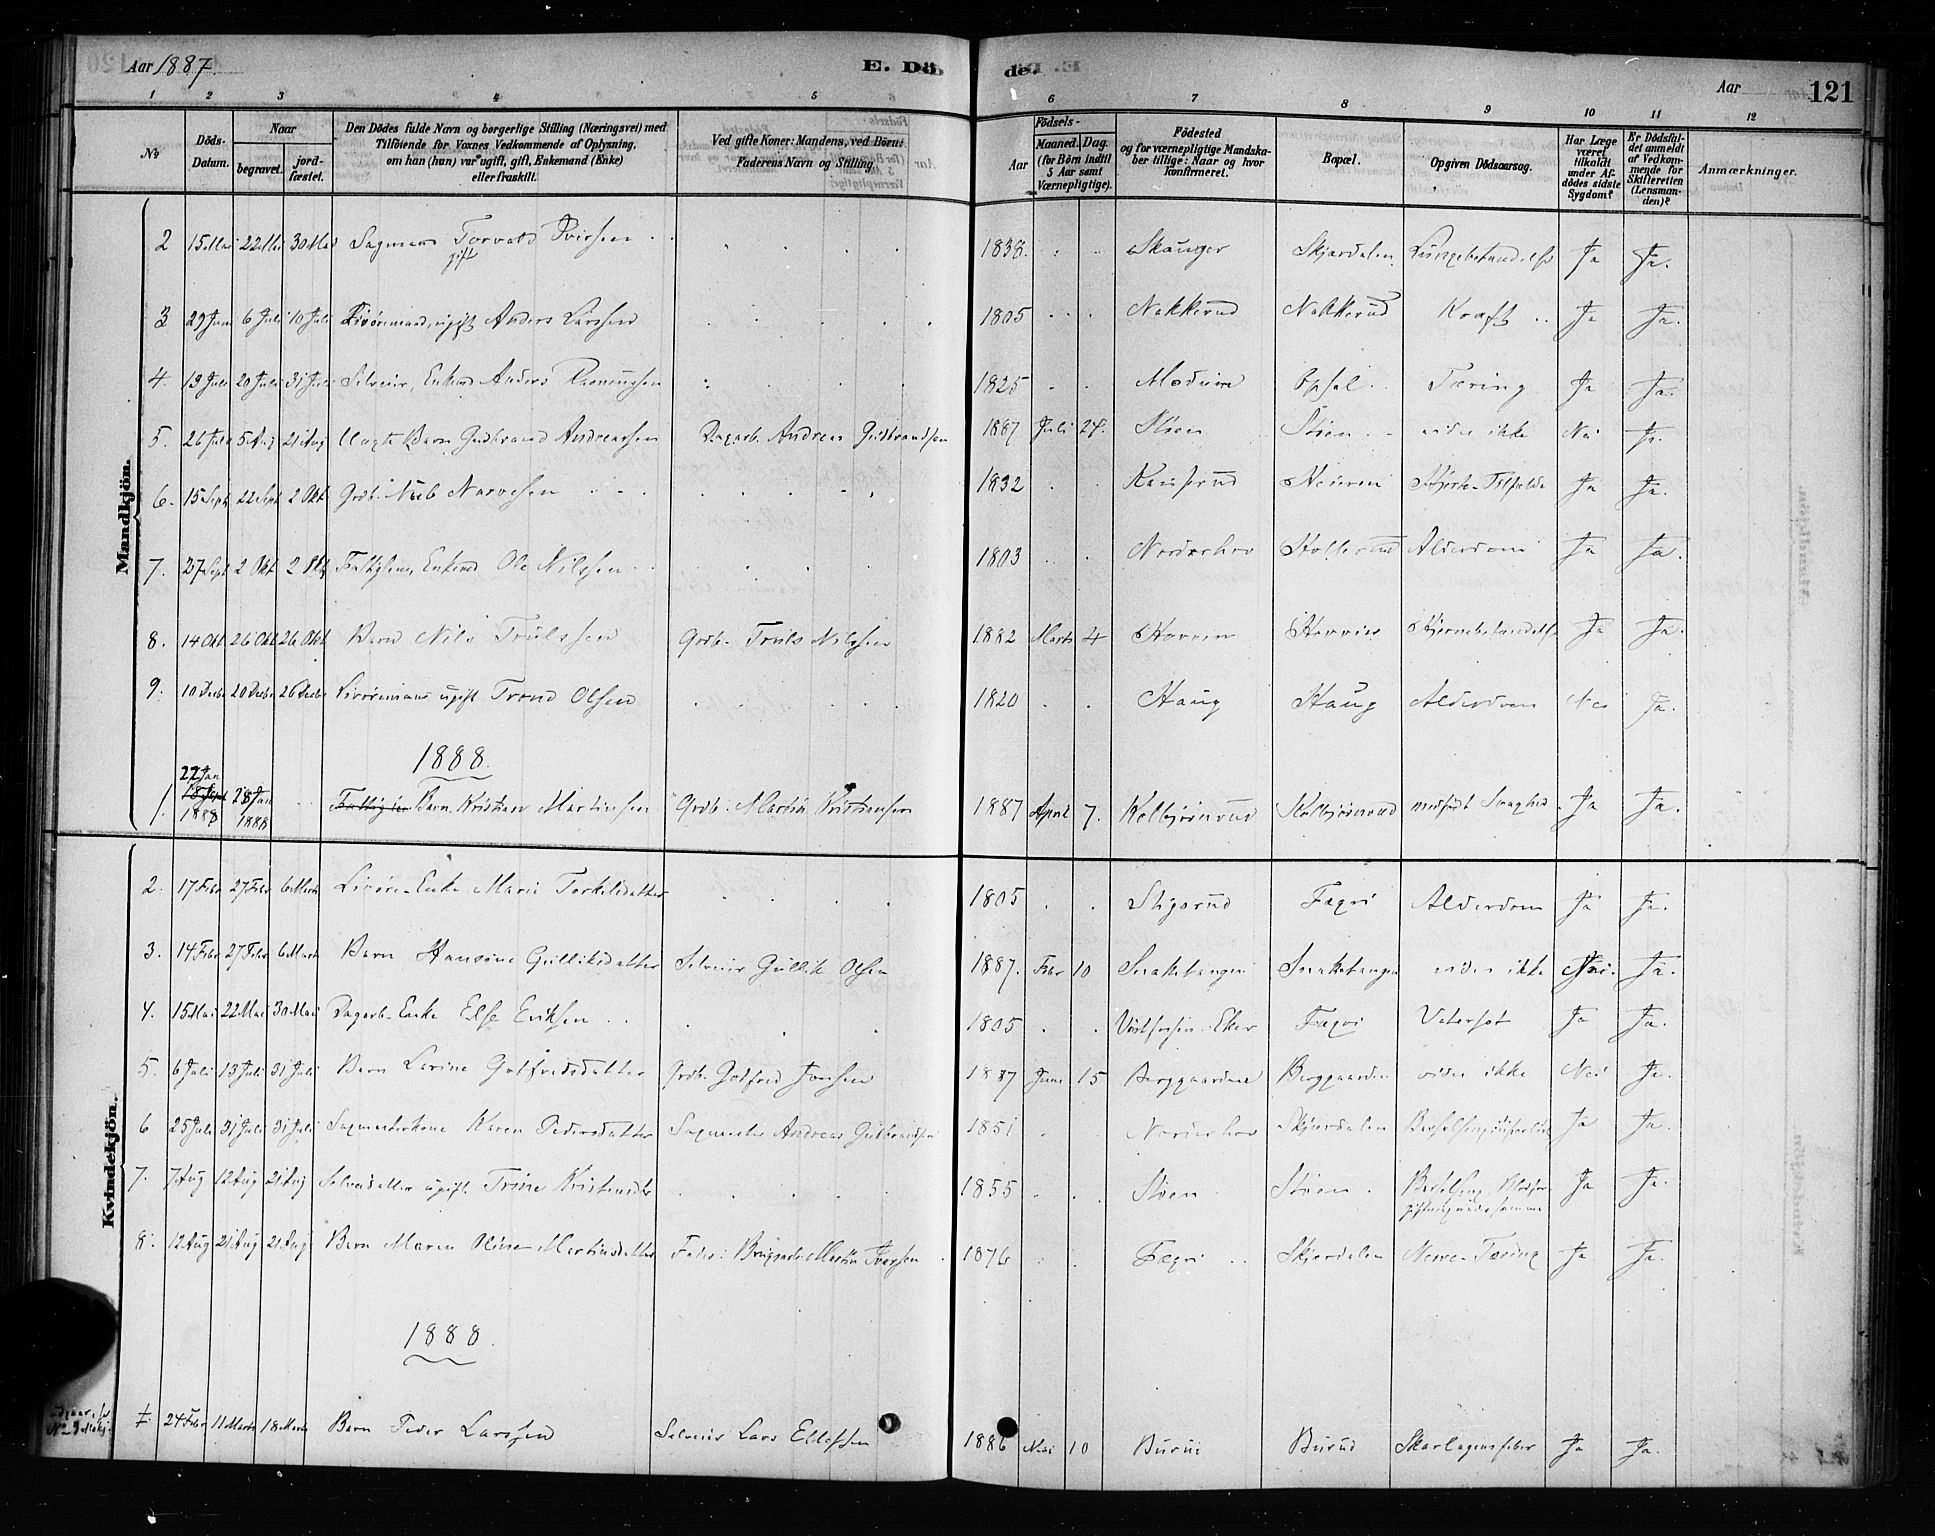 Aar 1887.
E. Dö
de.
Aar
121
1 2 3 4 5 6 7 8 9 10 11 12
No
Döds-Datum.
Naar
begravet.
jord-fæstet.
Den Dödes fulde Navn og borgerlige Stilling (Næringsvei) med
Tilföiende for Voxnes Vedkommende af Oplysning,
om han (hun) var ugift, gift, Enkemand (Enke)
eller fraskilt.
Ved gifte Koner: Mandens, ved Börn:
Faderens Navn og Stilling.
Födsels-
Aar
Maaned. Dag.
(for Börn indtil
5 Aar samt
Værnepligtige).
Födested
og for værnepligtige Mandska-
ber tillige: Naar og hvor
konfirmeret.
Bopæl.
Opgiven Dödsaarsag.
Har Læge
været
tilkaldt
under Af-
dödes sidste
Sygdom?
Er Dödsfal-
det anmeldt
af Vedkom-
mende for
Skifteretten
(Lensman-
den)?
Anmærkninger.
Mandkjön.
2 15 Mai 22 Mai 30 Mai Sagmand Torvald Iversen 1838. Skauger Skjærdalen Lungebetændelse Ja Ja.
gift
3 29 Juni 6 Juli 10 Juli Livöremand, ugift Anders Larssen 1805 Nakkerud Nakkerud Kræft Ja Ja.
4 13 Juli 20 Juli 31 Juli Selveier, Enkem Anders Rasmussen 1825 Modum Opsal Tæring Ja Ja.
5. 26 Juli 5 Aug 21 Aug Uægte Barn Gudbrand Andreassen Dagarb. Andreas Gudbrandsen 1887 Juli 24. Støen Støen vides ikke Nei Ja.
6. 15 Sept 22 Sept 2 Okt Grdb. Nub Narvesen 1832 Hjerte-Tilfælde Ja Ja.
7. 27 Sept 2 Okt 2 Okt Fattiglem, Enkem Ole Nilssen 1803 Norderhov Hollerud Alderdom Ja Ja.
8. 14 Okt 26 Okt 26 Okt Barn Nils Trulssen Grdb. Truls Nilssen 1882 Marts 4 Hovrin Hjernebetændelse Ja Ja.
9. 10 Decbr 20 Decbr 26 Decbr Livöremand ugift Trond Olsen 1820 Haug Haug Alderdom Nei Ja.
1888.
22 Jan
1. 1888 28 Jan 1888 Fattiglem Barn Kristian Martinsen Grdb. Martin Kristiansen 1887 April 7. Kolbjørnrud Kolbjørnrud medfødt Svaghed Ja Ja.
Kvindekjön.
2. 17 Febr 27 Febr 6 Marts Livöre-Enke Marie Torkildsdatter 1805 Stigsrud Fægri Alderdom Ja Ja.
3. 14 Febr 27 Febr 6 Marts Barn Hansine Gulliksdatter Selveier Gullik Olsen 1887. Febr 10 Snaketangen Snaketangen vides ikke Nei. Ja.
4. 15 Mai 22 Mai 30 Mai Dagarb-Enke Else Eriksen 1805 Vestfossen Eker Fægri Vatersot Ja Ja.
5. 6 Juli 13 Juli 31 Juli Barn Larine Gotfredsdatter Grdb. Godfred Jonsen 1887 Juni 15 Berggaarden Berggaarden vides ikke Nei Ja.
6 25 Juli 31 Juli 31 Juli Sagmesterkone Karen Pedersdatter Sagmester Andreas Gulbrandsen 1851 Norderhov Skjærdalen Ja Ja.
7. 7 Aug 12 Aug 21 Aug Selveierdatter ugift Trine Kristensdtr 1855 Støen Støen Barselseng, Blodfor- Ja Ja.
giftning under samme
8. 12 Aug 21 Aug 21 Aug Barn Maren Oline Martinsdatter Fader: Brugsarb. Martin Iversen 1876 Fægri Skjærdalen Nerve-Tæring Ja Ja.
1888.
Udgaar, se
No 3 Mkj.
1. 24 Febr 11 Marts 18 Marts Barn Peder Larssen Selveier Lars Ellefsen 1886 Mai 10 Burud Burud Skarlagensfeber Ja Ja.